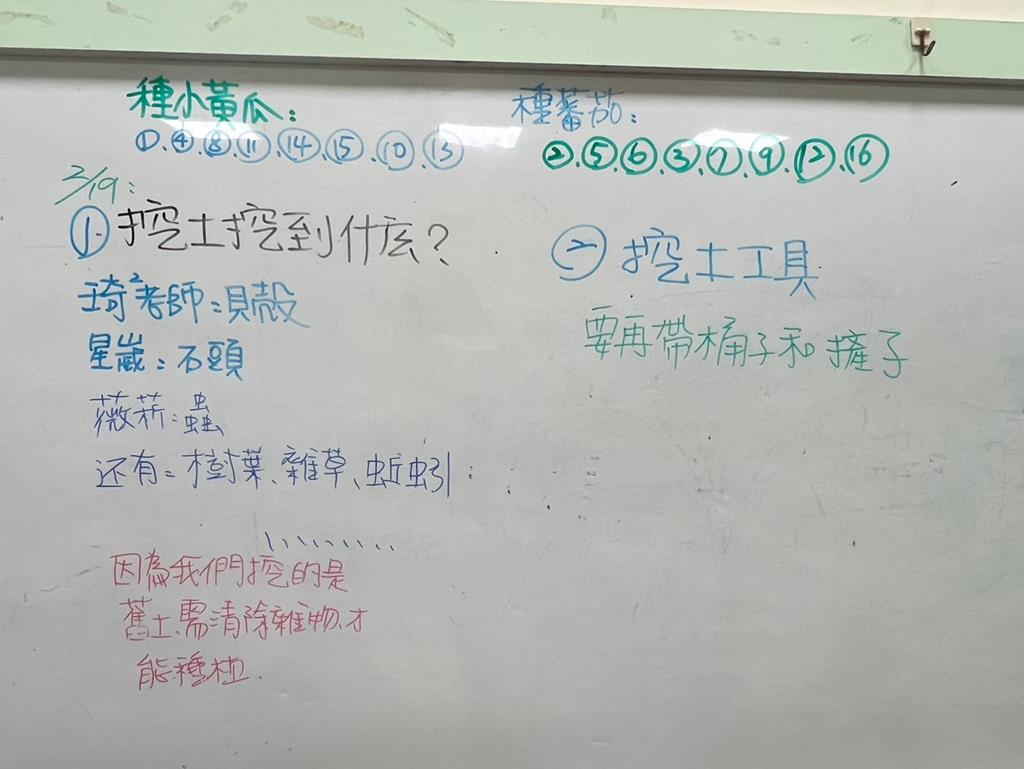 種小黃瓜:
①.④.⑧.⑪.⑭.⑮.⑩.⑬
種蕃茄:
②.⑤.⑥.③.⑦.⑨.⑫.⑯
3/19:
①挖土挖到什庅?
琦²老師:貝殼
星崴:石頭
薇菥:蟲
还有:樹葉、雜草、蚯蚓
、、、、、、、、
因為我們挖的是
舊土、需清除雜物、才
能種植.
㊁挖土工具
要再帶桶子和擓子